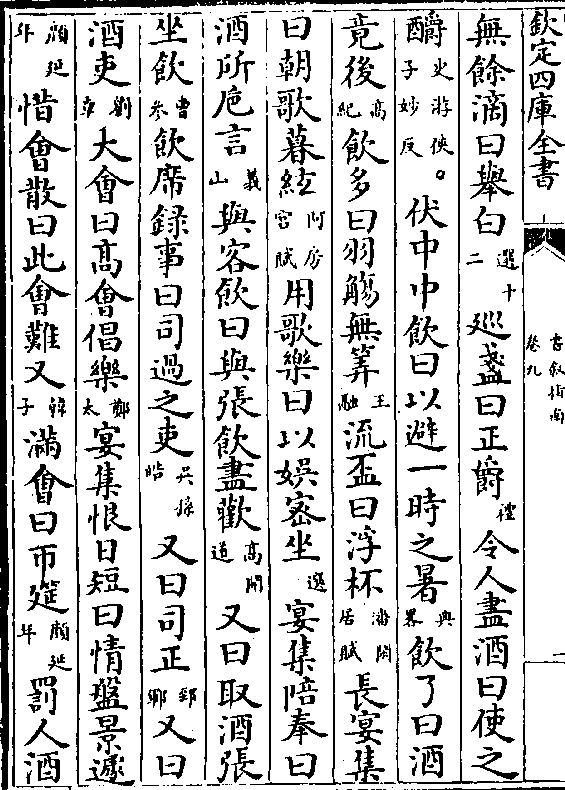 欽定四庫全書
書叙指南
卷九
無餘滴曰舉白選十二巡盞曰正爵禮令人盡酒曰使之
釂史游俠子妙反。伏中中飲曰以避一時之暑典畧飲了曰酒
竟後高紀飲多曰羽觴無筭王融流盃曰浮杯潘閒居賦長宴集
曰朝歌暮絃阿房宮賦用歌樂曰以娯宻坐選宴集陪奉曰
酒所巵言義山與客飲曰與張飲盡歡高開道又曰取酒張
坐飲曹參飲席録事曰司過之吏吴孫皓又曰司正鄉又曰
酒吏劉章大會曰髙會倡樂鄭太宴集恨日短曰情盤景遽
顔延年惜會散曰此會難又韓子滿會曰帀筵顔延年罰人酒